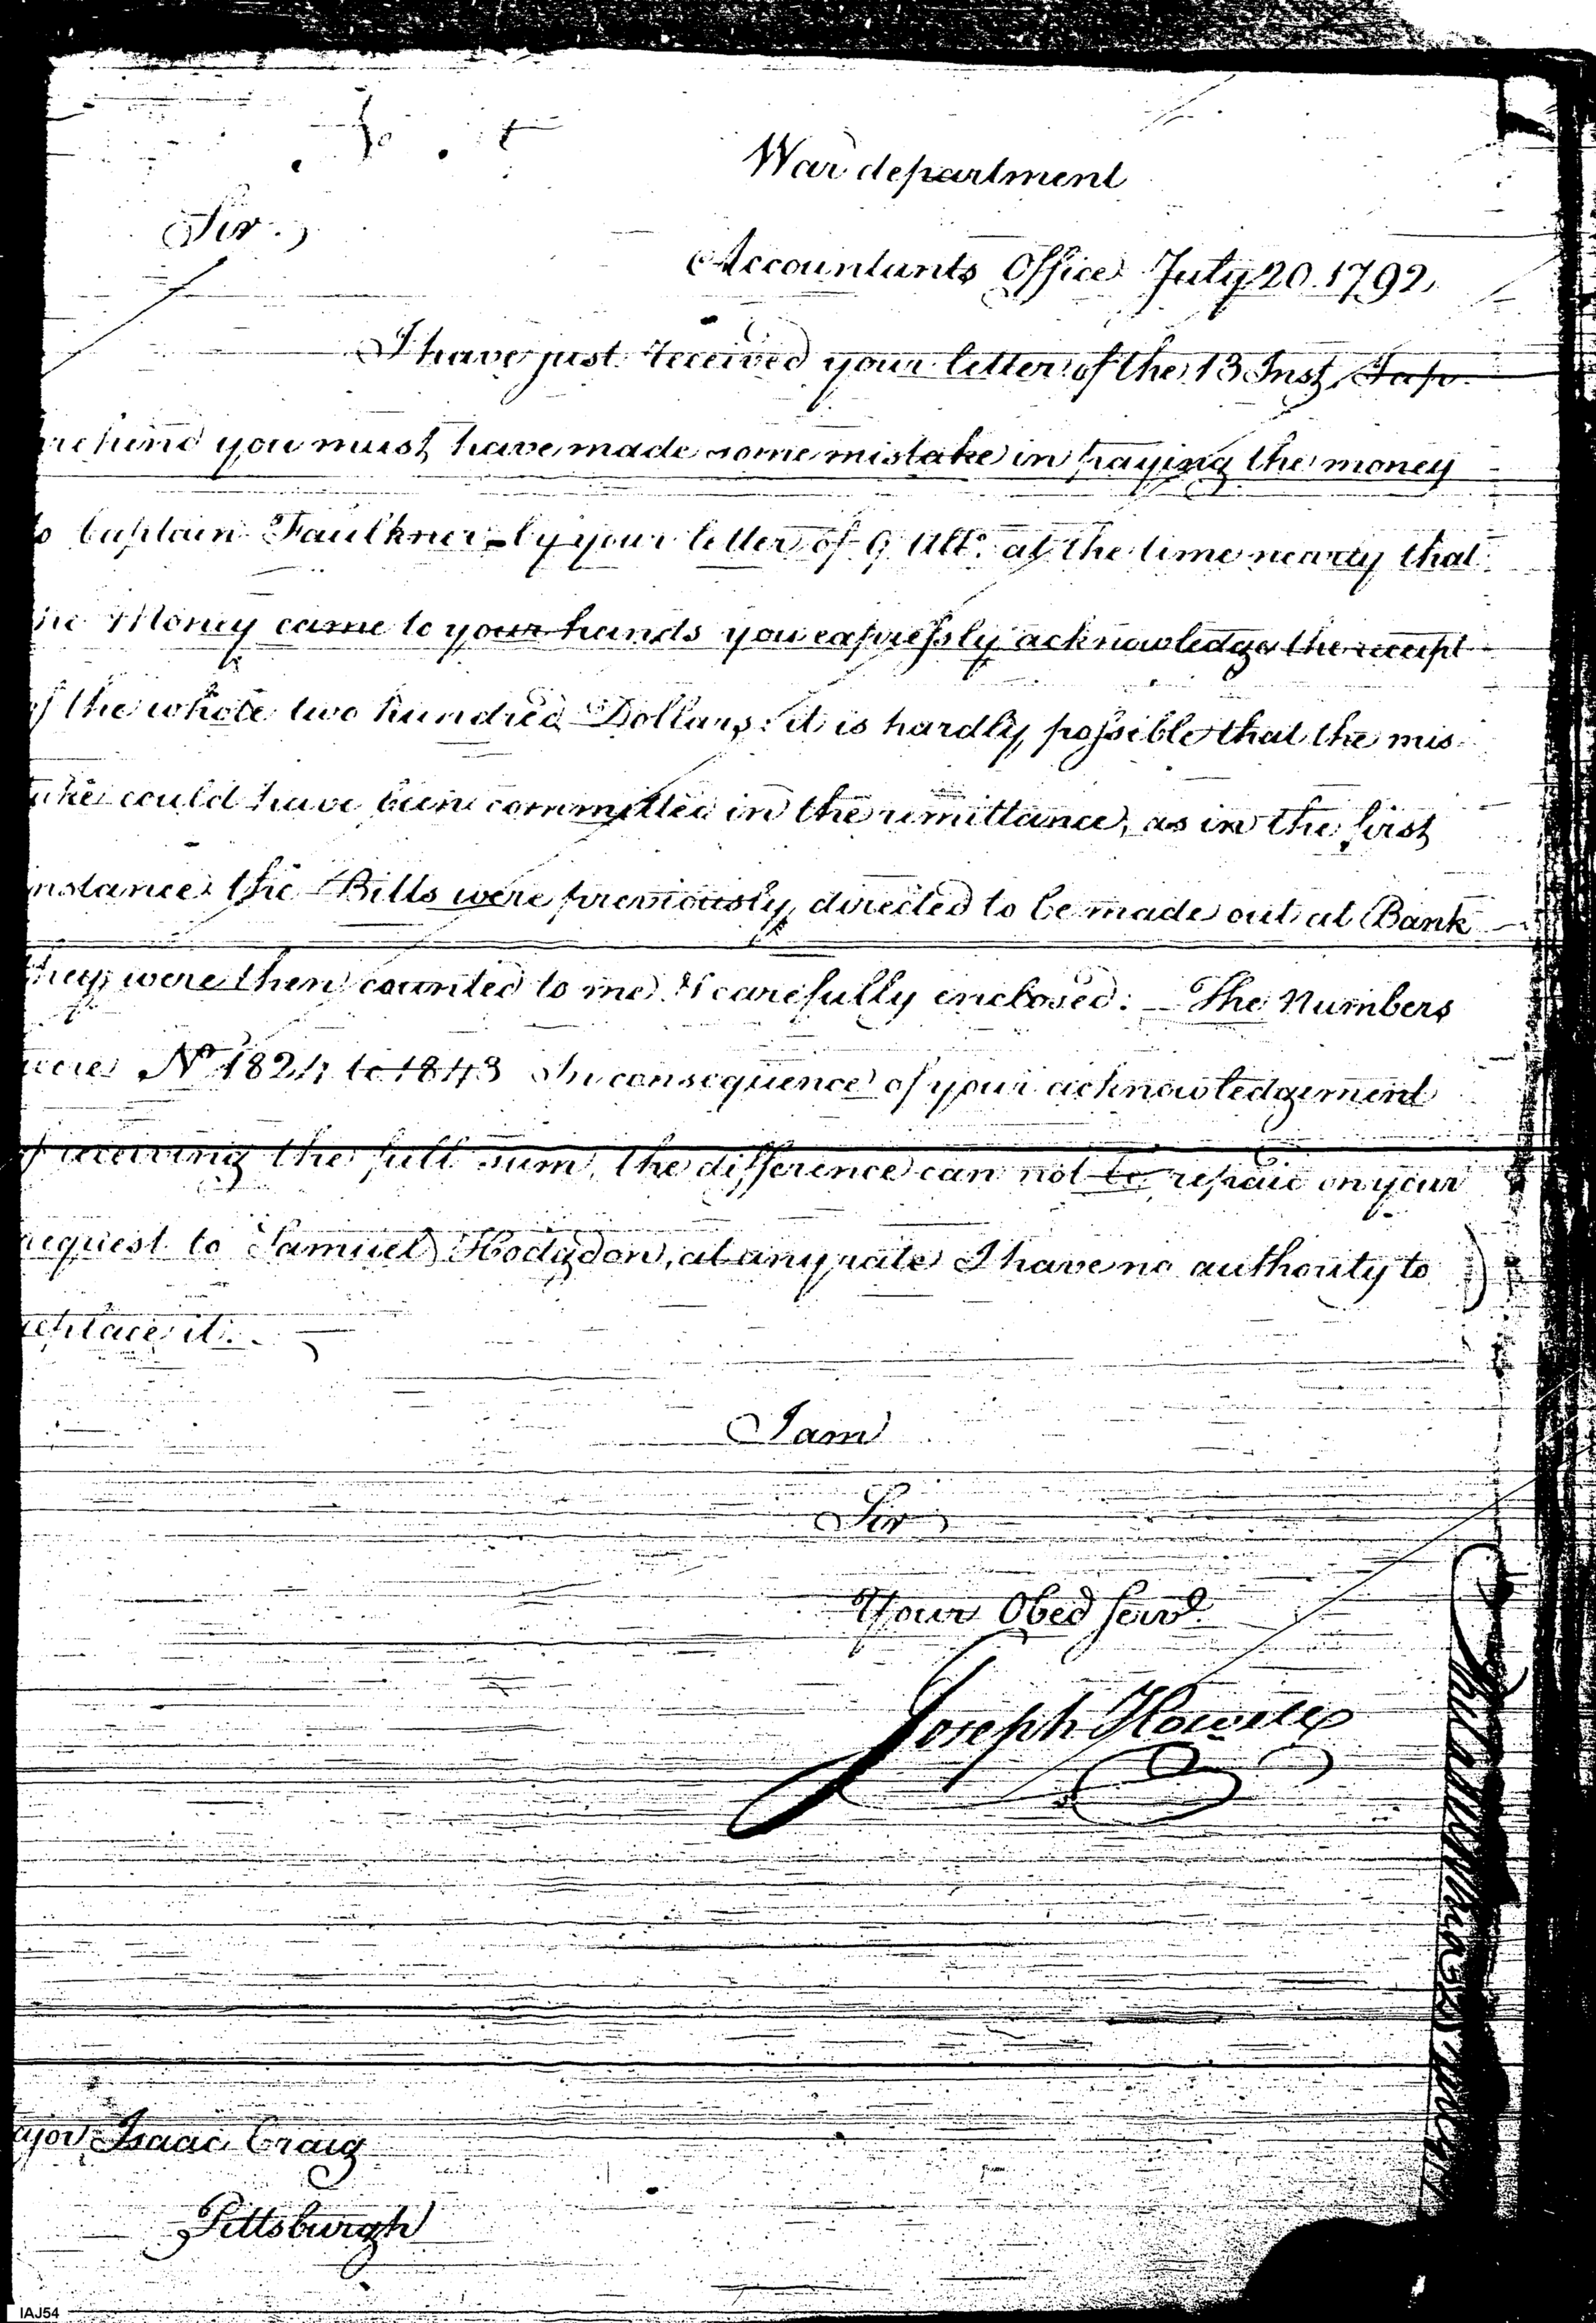 War department
Sir.
Accountants Office July 20. 1792
I have just received your letter of the 13 Inst, I ap-
prehend you must have made some mistake in paying the money
to Captain Faulkner - by your letter of 9 Ulto. at the time nearly that
the Money came to your hands you expressly acknowledge the receipt
of the whole two hundred Dollars: it is hardly possible that the mis
take could have been committed in the remittance, as in the first
instance the Bills were previously directed to be made out at Bank
they were then counted to me & carefully enclosed: The Numbers
were No 1824 to 1843 In consequence of your acknowledgement
of receiving the full sum, the difference can not be repaid on your
request to Samuel Hodgdon, at any rate I have no authority to
replace it.
I am
Sir
Your Obed Servt.
Joseph Howell
ajor Isaac Craig
Pittsburgh
IAJ54